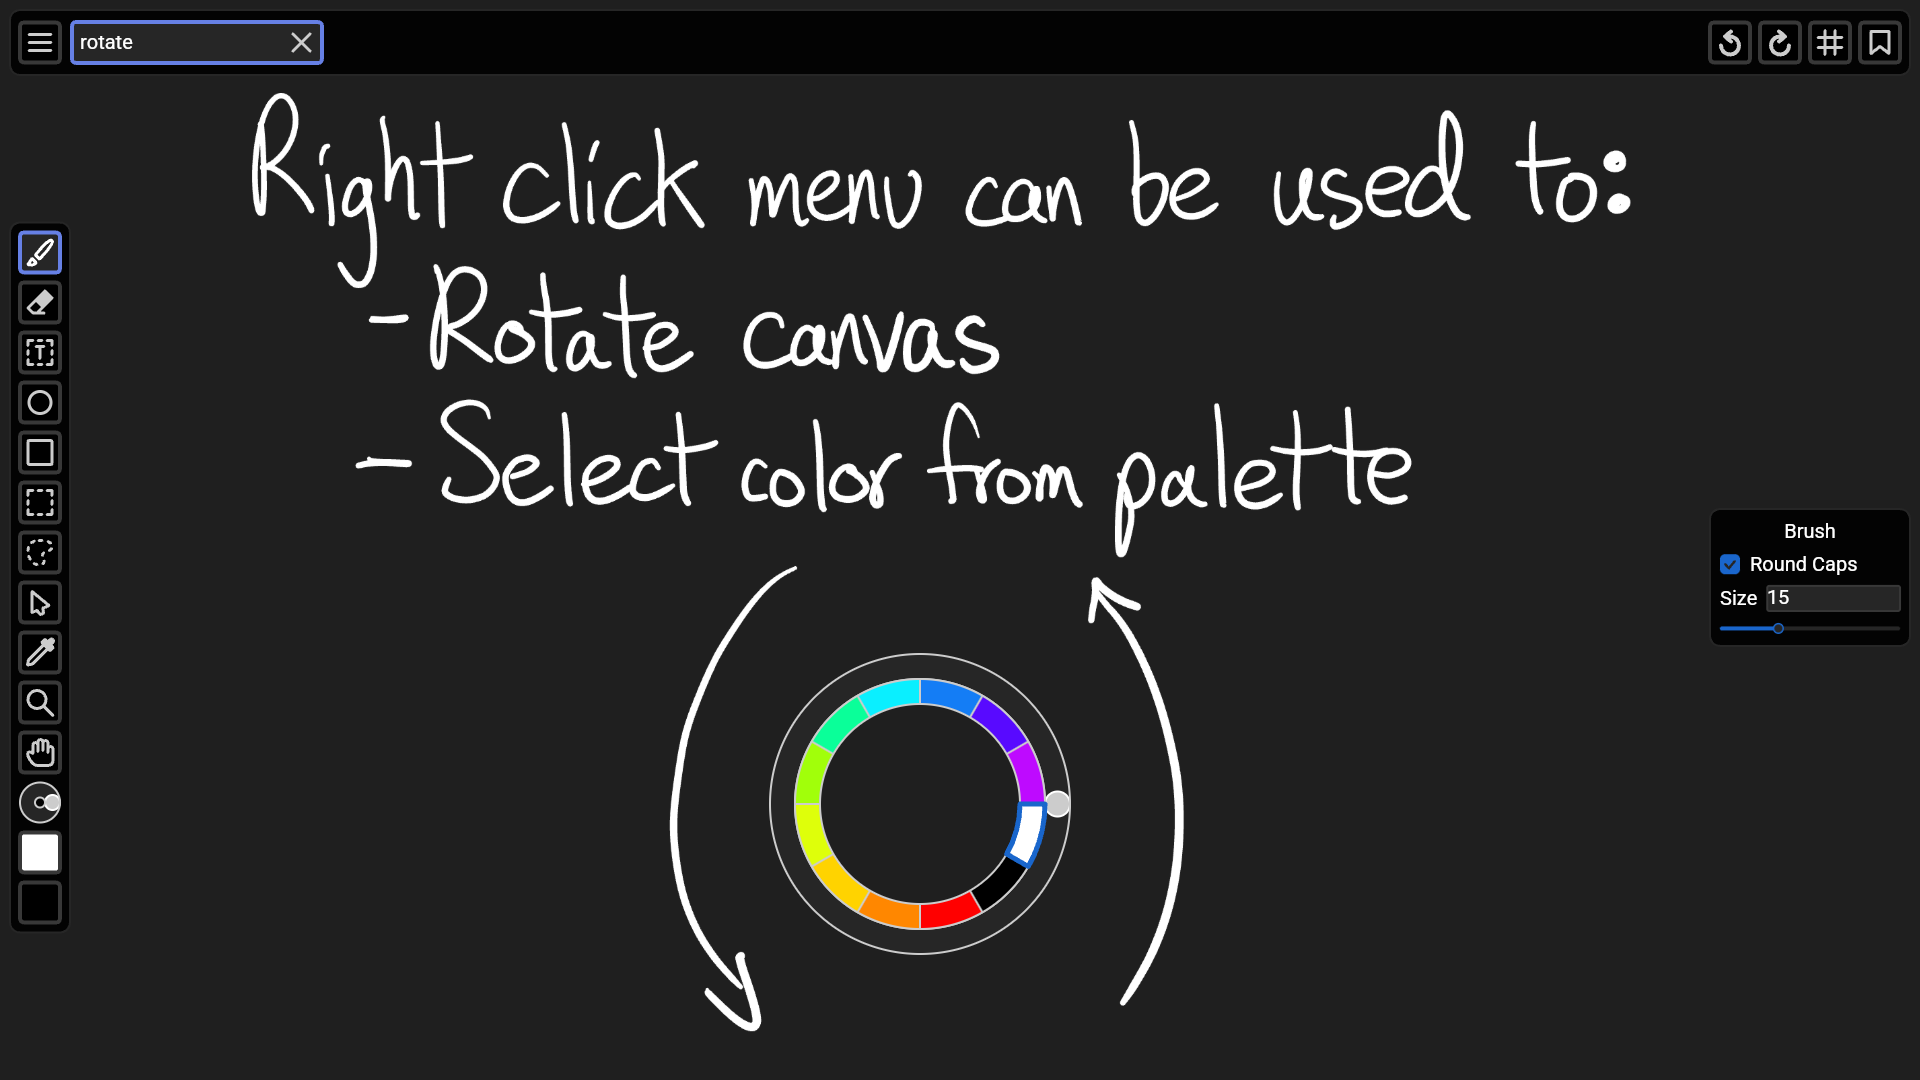 rotate
Right click menu can be used to:
- Rotate canvas
- Select color from palette
Brush
Round Caps
Size 15
T